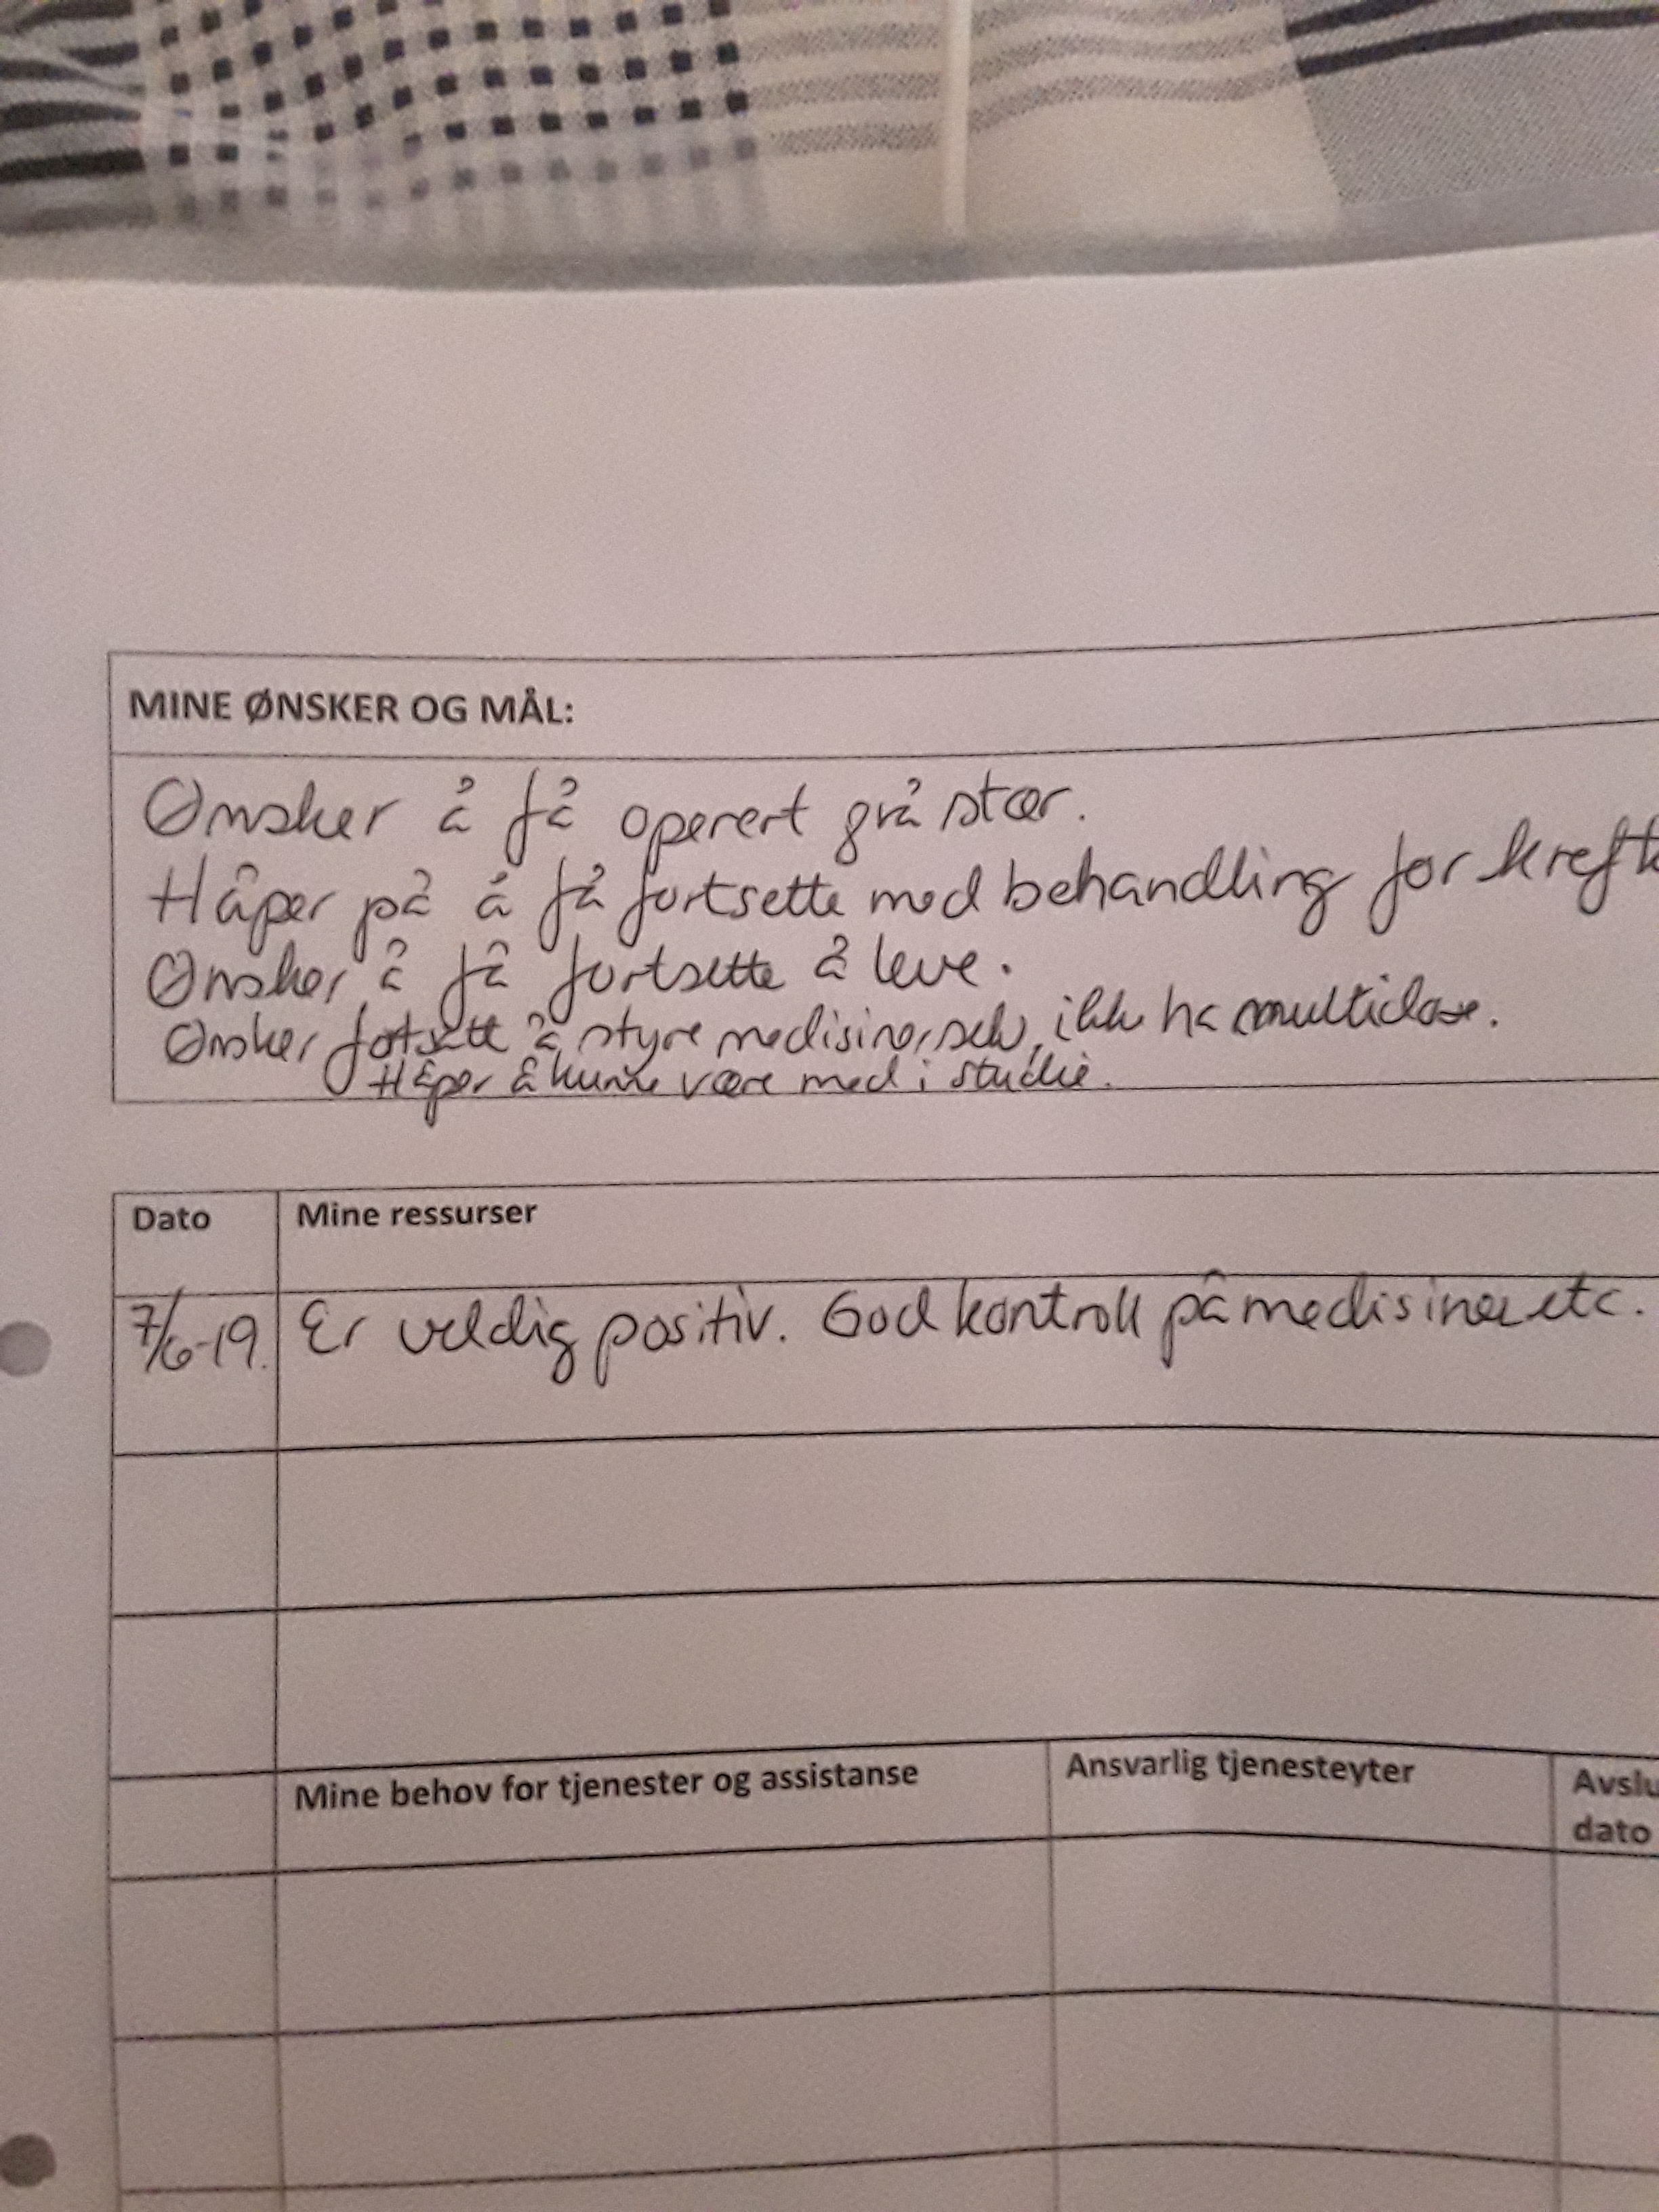 MINE ØNSKER OG MÅL:
Ønsker å få operert grå stær.
Håper på å få fortsette med behandling for kreft
Ønsker å få fortsette å leve.
Ønsker fortsett å styre medisiner selv, ikke ha multidose.
Håper å kunne være med i studie.
Dato Mine ressurser
7/6-19. Er veldig positiv. God kontroll på medisiner etc.
Mine behov for tjenester og assistanse Ansvarlig tjenesteyter Avslu
dato